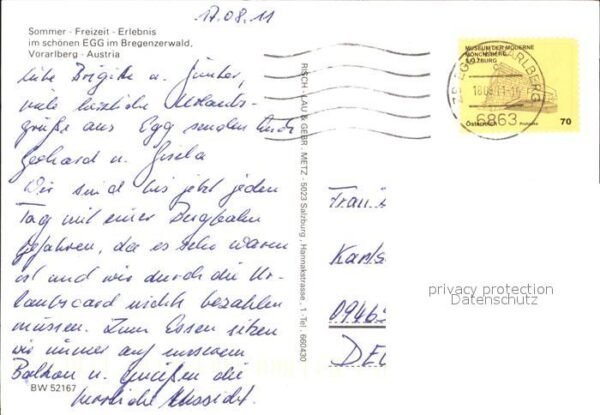 17.08.11
Sommer · Freizeit · Erlebnis
im schönen EGG im Bregenzerwald,
Vorarlberg · Austria
Liebe Brigitte u. Günter,
viele herzliche Urlaubs-
grüße aus Egg senden Euch
Gerhard u. Gisela
Wir sind bis jetzt jeden
Tag mit einer Bergbahn
gefahren, da es sehr warm
ist und wir durch die Ur-
laubscard nichts bezahlen
müssen. Zum Essen sitzen
wir immer auf unserem
Balkon u. genießen die
herrliche Aussicht.
BW 52167
RISCH-LAU & GEBR. METZ · 5023 Salzburg, Hannakstrasse, 1 · Tel. 660430
MUSEUM DER MODERNE
MÖNCHSBERG
SALZBURG
Österreich
70
EGG
VORARLBERG
6863
Karls
0946
DEU
privacy protection
Datenschutz